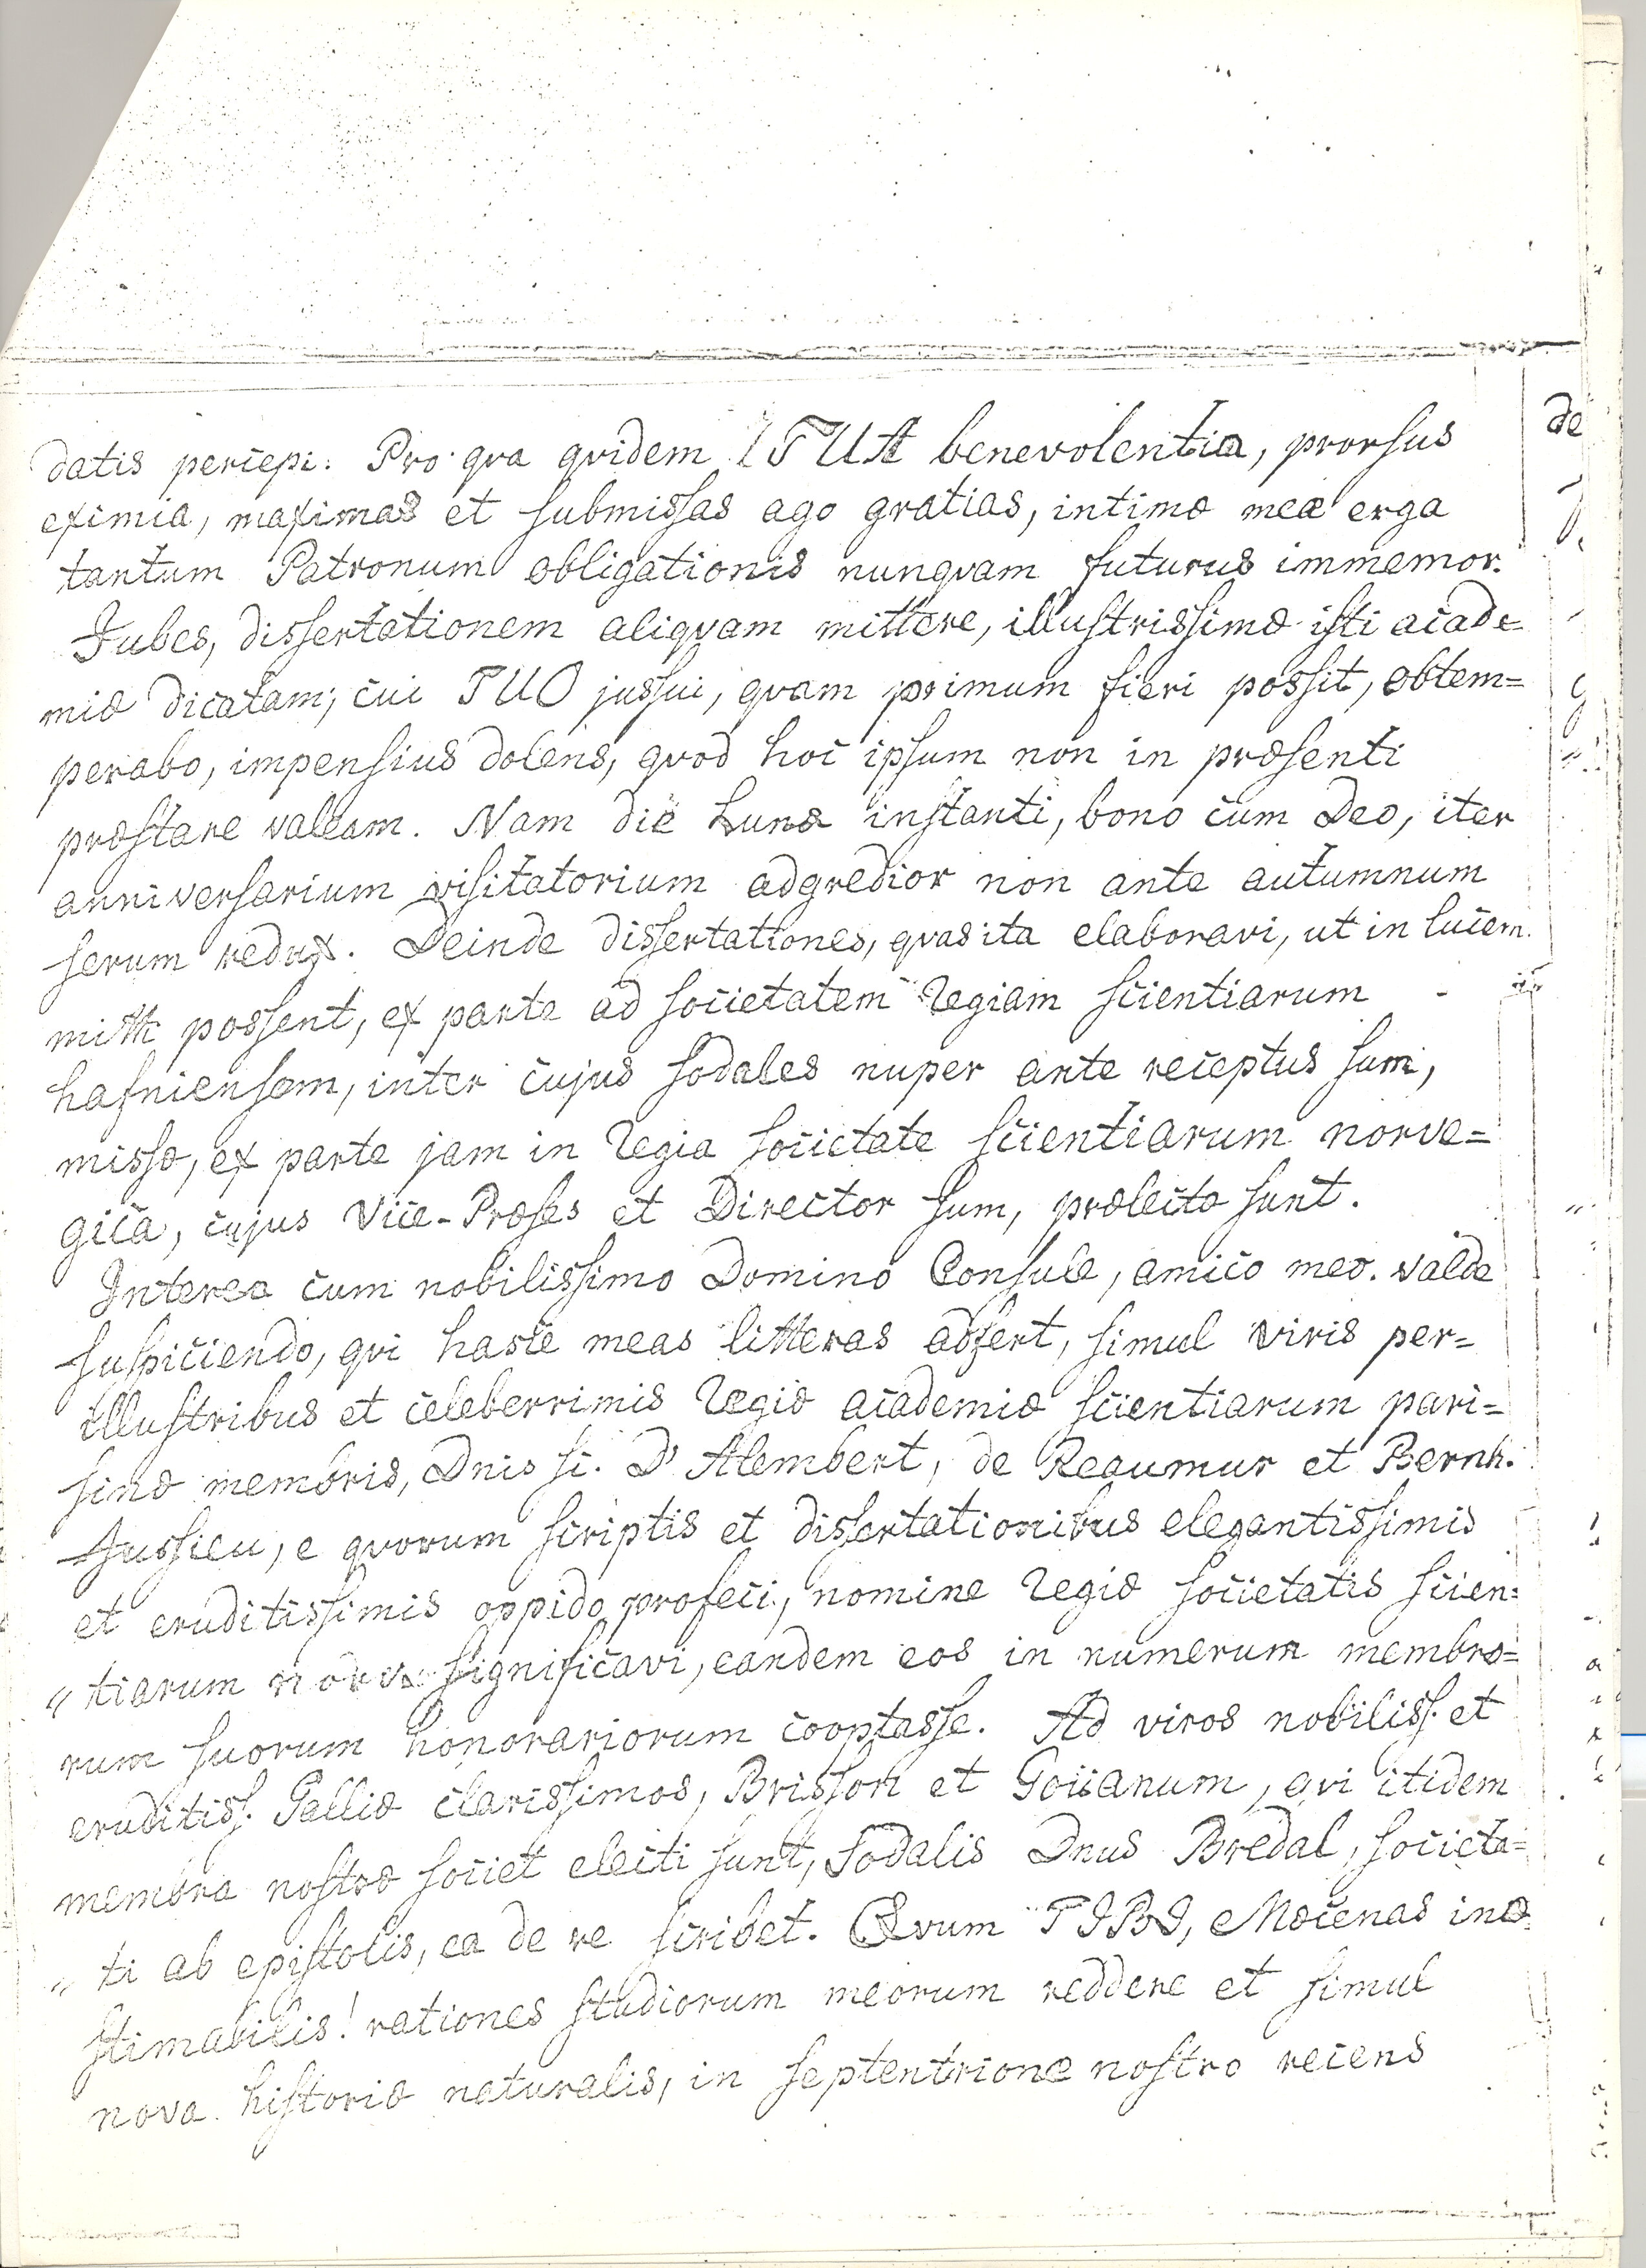 datis percepi. Pro qva qvidem TUA benevolentia, prorsus
eximia, maximas et submissas ago gratias, intimæ meæ erga
tantum Patronum obligationis nunqvam futurus immemor.
Jubes, dissertationem aliqvam mittere, illustrissimæ isti acade=
miæ dicatam; cui TUO jussui, qvam primum fieri possit, obtem=
perabo, impensius dolens, qvod hoc ipsum non in præsenti
præstare valeam. Nam die Lunæ instanti, bono cum Deo, iter
anniversarium visitatorium adgredior non ante autumnum
serum redux. Deinde dissertationes, qvas ita elaboravi, ut in lucem
mitti possent, ex parte ad societatem Regiam scientiarum
hafniensem, inter cujus sodales nuper ante receptus sum,
missæ, ex parte jam in Regia societate scientiarum norve=
gica, cujus Vice-Præses et Director sum, prælectæ sunt.
Interea cum nobilissimo Domino Consule, amico meo valde
suspiciendo, qvi hasce meas litteras adfert, simul viris per=
illustribus et celeberrimis Regiæ academiæ scientiarum pari=
sinæ membris, Dnis si. D'Alembert, de Reaumur et Bernh.
Jussieu, e qvorum scriptis et dissertationibus elegantissimis
et eruditissimis oppido profeci, nomine Regiæ societatis scien=
"tiarum norv. significavi, eandem eos in numerum membro=
rum suorum honorariorum cooptasse. Ad viros nobiliss. et
eruditiss. Galliæ clarissimos, Brisson et Goüanum, qvi itidem
membra nostræ societ electi sunt, Sodalis Dnus Bredal, societa=
"ti ab epistolis, ea de re scribet. Qvum TIBI, Mæcenas inæ=
stimabilis! rationes studiorum meorum reddere et simul
nova historiæ naturalis, in septentrione nostro recens
de